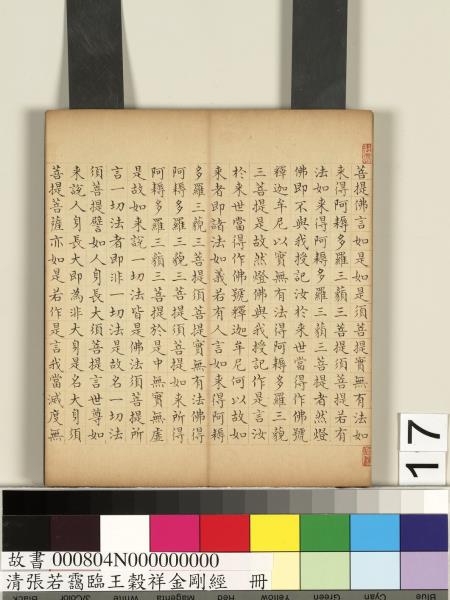 菩提佛言如是如是須菩提實無有法如
来得阿耨多羅三藐三菩提須菩提若有
法如来得阿耨多羅三藐三菩提者然燈
佛即不與我授記汝於来世當得作佛號
釋迦牟尼以實無有法得阿耨多羅三藐
三菩提是故然燈佛與我授記作是言汝
於来世當得作佛號釋迦牟尼何以故如
来者即諸法如義若有人言如来得阿耨
多羅三藐三菩提須菩提實無有法佛得
阿耨多羅三藐三菩提須菩提如来所得
阿耨多羅三藐三菩提於是中無實無虛
是故如来說一切法皆是佛法須菩提所
言一切法者即非一切法是故名一切法
須菩提譬如人身長大須菩提言世尊如
来說人身長大即為非大身是名大身須
菩提菩薩亦如是若作是言我當滅度無
17
故書 000804N000000000
清張若靄臨王穀祥金剛經 冊
Black 3/Color White Magenta Red Yellow Green Cyan Blue